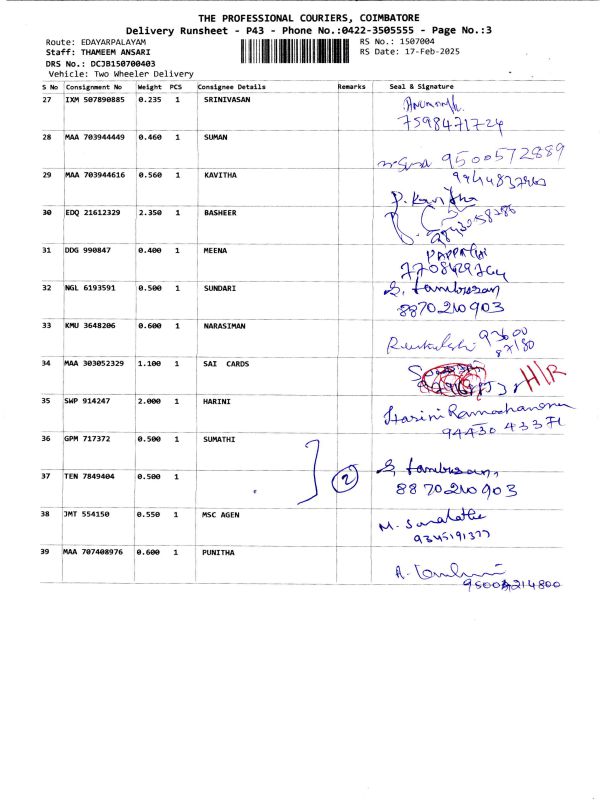 THE PROFESSIONAL COURIERS, COIMBATORE
Delivery Runsheet - P43 - Phone No.:0422-3505555 - Page No.:3
Route: EDAYARPALAYAM RS No.: 1507004
Staff: THAMEEM ANSARI RS Date: 17-Feb-2025
DRS No.: DCJB150700403
Vehicle: Two Wheeler Delivery
S No Consignment No Weight PCS Consignee Details Remarks Seal & Signature
27 IXM 507890885 0.235 1 SRINIVASAN
7598471724
28 MAA 703944449 0.460 1 SUMAN
9500572889
29 MAA 703944616 0.560 1 KAVITHA
P. Kavitha
30 EDQ 21612329 2.350 1 BASHEER
31 DDG 990847 0.400 1 MEENA
32 NGL 6193591 0.500 1 SUNDARI
8870210903
33 KMU 3648206 0.600 1 NARASIMAN
34 MAA 303052329 1.100 1 SAI CARDS
H/R
35 SWP 914247 2.000 1 HARINI
Harini Ramachandran
94430 43371
36 GPM 717372 0.500 1 SUMATHI
37 TEN 7849404 0.500 1 2
8870210903
38 JMT 554150 0.550 1 MSC AGEN
9345191377
39 MAA 707408976 0.600 1 PUNITHA